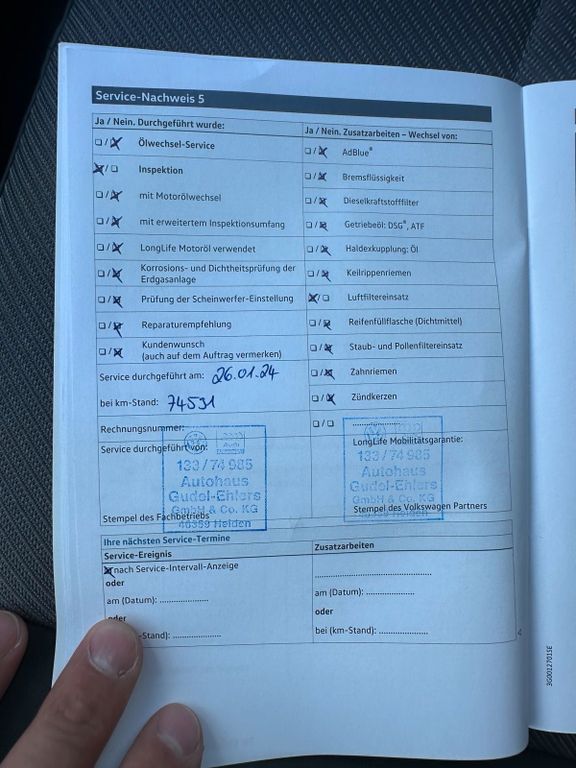 Service-Nachweis 5
Ja / Nein. Durchgeführt wurde:
Ölwechsel-Service
Inspektion
mit Motorölwechsel
mit erweitertem Inspektionsumfang
LongLife Motoröl verwendet
Korrosions- und Dichtheitsprüfung der
Erdgasanlage
Prüfung der Scheinwerfer-Einstellung
Reparaturempfehlung
Kundenwunsch
(auch auf dem Auftrag vermerken)
Service durchgeführt am: 26.01.24
bei km-Stand: 74531
Rechnungsnummer:
Service durchgeführt von:
Audi
133/74 985
Autohaus
Gudel-Ehlers
GmbH & Co. KG
46359 Heiden
Stempel des Fachbetriebs
Ja / Nein. Zusatzarbeiten – Wechsel von:
AdBlue®
Bremsflüssigkeit
Dieselkraftstofffilter
Getriebeöl: DSG®, ATF
Haldexkupplung: Öl
Keilrippenriemen
Luftfiltereinsatz
Reifenfüllflasche (Dichtmittel)
Staub- und Pollenfiltereinsatz
Zahnriemen
Zündkerzen
LongLife Mobilitätsgarantie:
133/74 985
Autohaus
Gudel-Ehlers
GmbH & Co. KG
46359 Heiden
Stempel des Volkswagen Partners
Ihre nächsten Service-Termine
Service-Ereignis
nach Service-Intervall-Anzeige
oder
am (Datum): ....................
oder
-Stand): ....................
Zusatzarbeiten
................................................
am (Datum): ....................
oder
bei (km-Stand): ....................
3G0012701SE